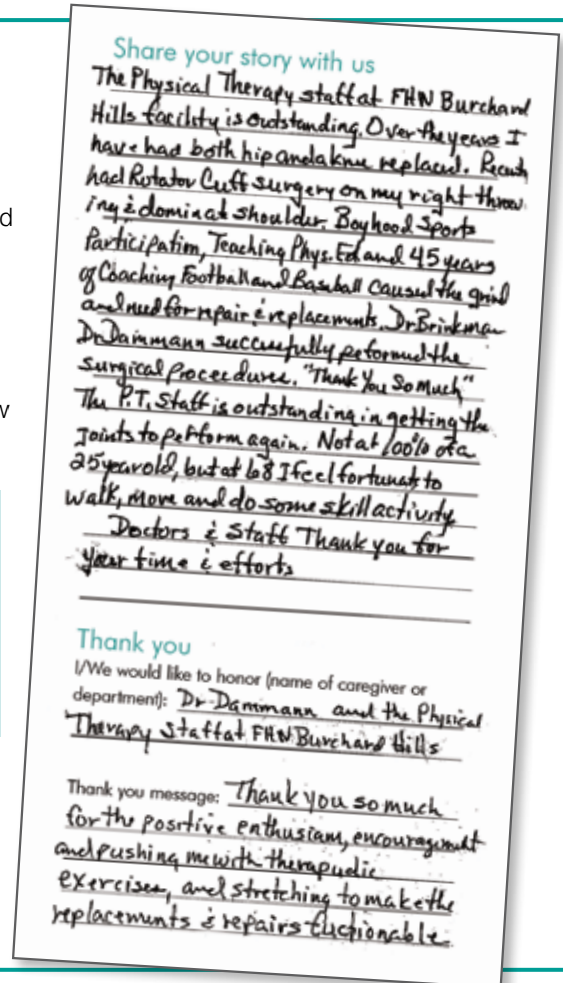 Share your story with us
The Physical Therapy staff at FHN Burchard
Hills facility is outstanding. Over the years I
have had both hip and a knee replaced. Recent
had Rotator Cuff surgery on my right throw
ing & dominat shoulder. Boyhood Sports
Participation, Teaching Phys. Ed and 45 years
of Coaching Football and Baseball caused the grind
and need for repair & replacements. Dr Brinkman
Dr. Dammann successfully peformed the
Surgical Proceedures. "Thank You So Much"
The P.T. Staff is outstanding in getting the
Joints to perform again. Not at 100% of a
25 year old, but at 68 I feel fortunate to
walk, move and do some skill activity
Doctors & Staff Thank you for
your time & efforts
Thank you
I/We would like to honor (name of caregiver or
department): Dr. Dammann and the Physical
Therapy Staff at FHN Burchard Hills
Thank you message: Thank you so much
for the positive enthusiam, encouragement
and pushing me with therapudic
exercises, and stretching to make the
replacements & repairs fuctionable
d
w